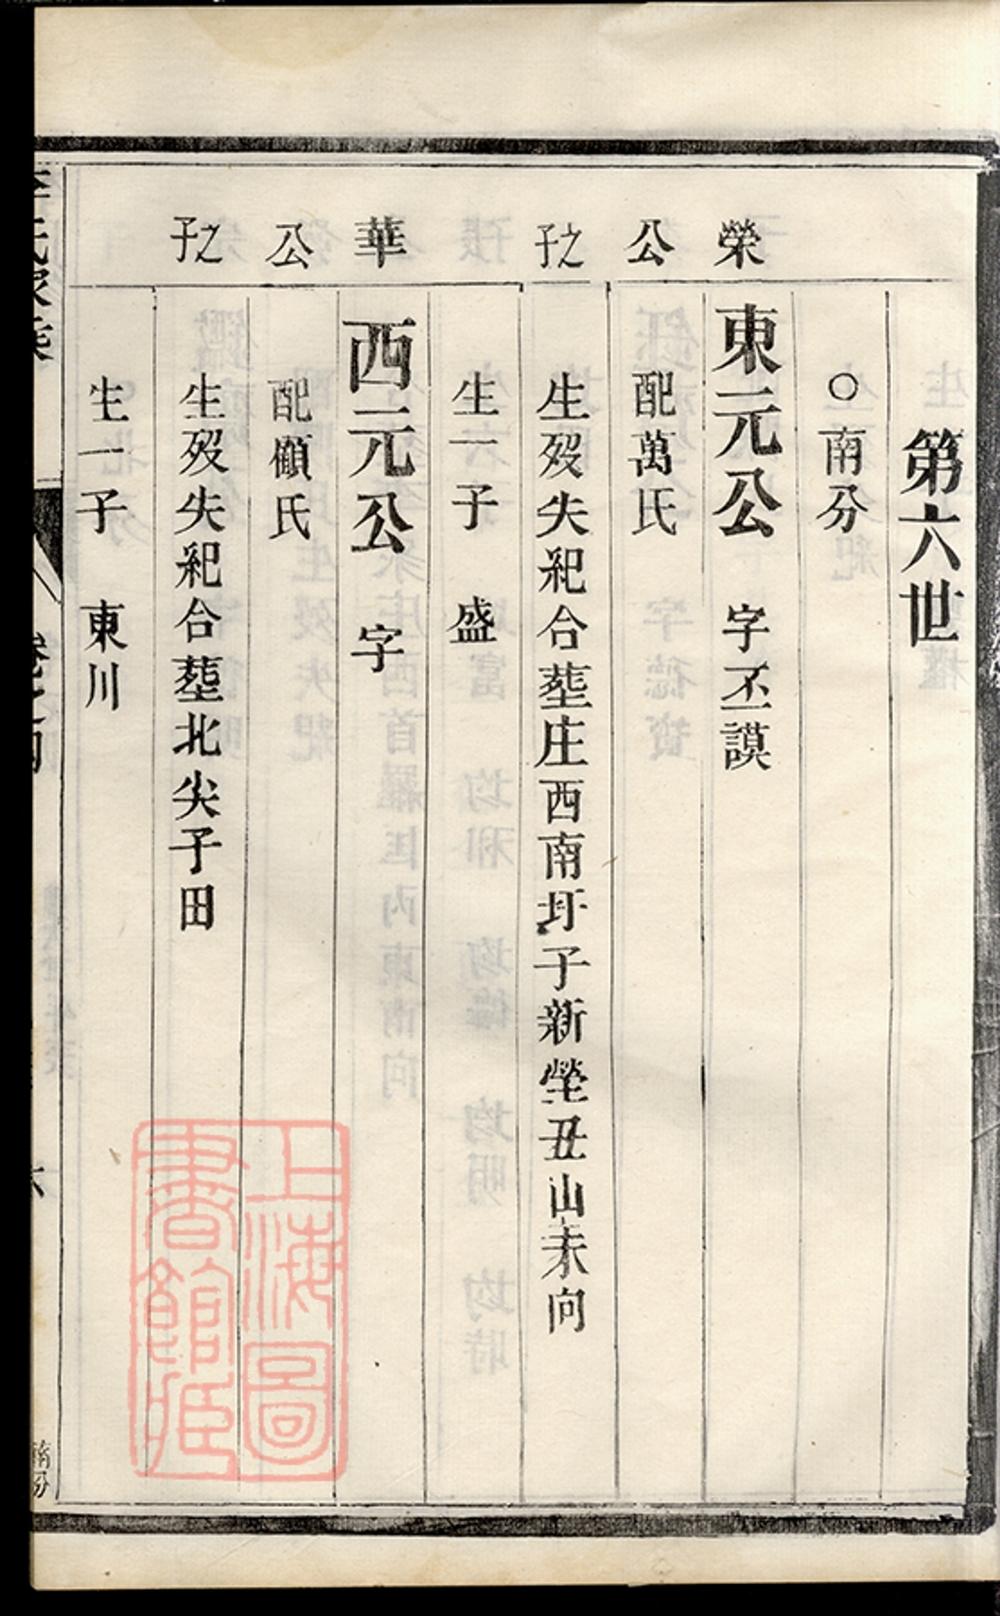 第六世
○南分
榮
東元公 字丕謨
公
配萬氏
之子
生歿失紀合塟庄西南圩子新塋丑山未向
生一子 盛
華
西元公 字
公
配顧氏
之子
生歿失紀合塟北尖子田
生一子 東川
南分
上海圖書館藏